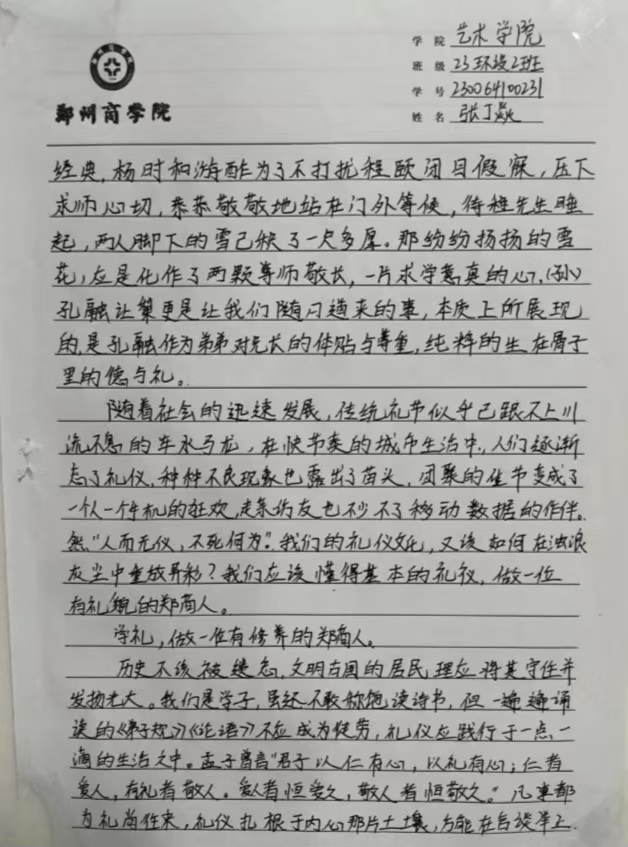 学院 艺术学院
班级 23环设2班
学号 230064100231
姓名 张丁焱
郑州商学院
经典，杨时和游酢为了不打扰程颐闭目假寐，压下
求师心切，恭恭敬敬地站在门外等候，待程先生睡
起，两人脚下的雪已积了一尺多厚。那纷纷扬扬的雪
花，应是化作了两颗尊师敬长，一片求学意真的心。
孔融让梨更是让我们随口道来的事，本质上所展现
的是孔融作为弟弟对兄长的体贴与尊重，纯粹的生在骨子
里的德与礼。
随着社会的迅速发展，传统礼节似乎已跟不上川
流不息的车水马龙，在快节奏的城市生活中，人们逐渐
忘了礼仪，种种不良现象也露出了苗头，团聚的佳节变成了
一个人一个手机的狂欢，走亲访友也少不了移动数据的作伴。
然“人而无仪，不死何为”。我们的礼仪文化，又该如何在浊浪
灰尘中重放异彩？我们应该懂得基本的礼仪，做一位
有礼貌的郑商人。
学礼，做一位有修养的郑商人。
历史不该被遗忘，文明古国的居民理应将其守住并
发扬光大。我们是学子，虽还不敢称饱读诗书，但一遍遍诵
读的《弟子规》《论语》不应成为徒劳，礼仪应践行于一点一
滴的生活之中。孟子曾言“君子以仁存心，以礼存心；仁者
爱人，有礼者敬人。爱人者恒爱之，敬人者恒敬之。”凡事都
为礼尚往来，礼仪扎根于内心那片土壤，方能在言谈举止